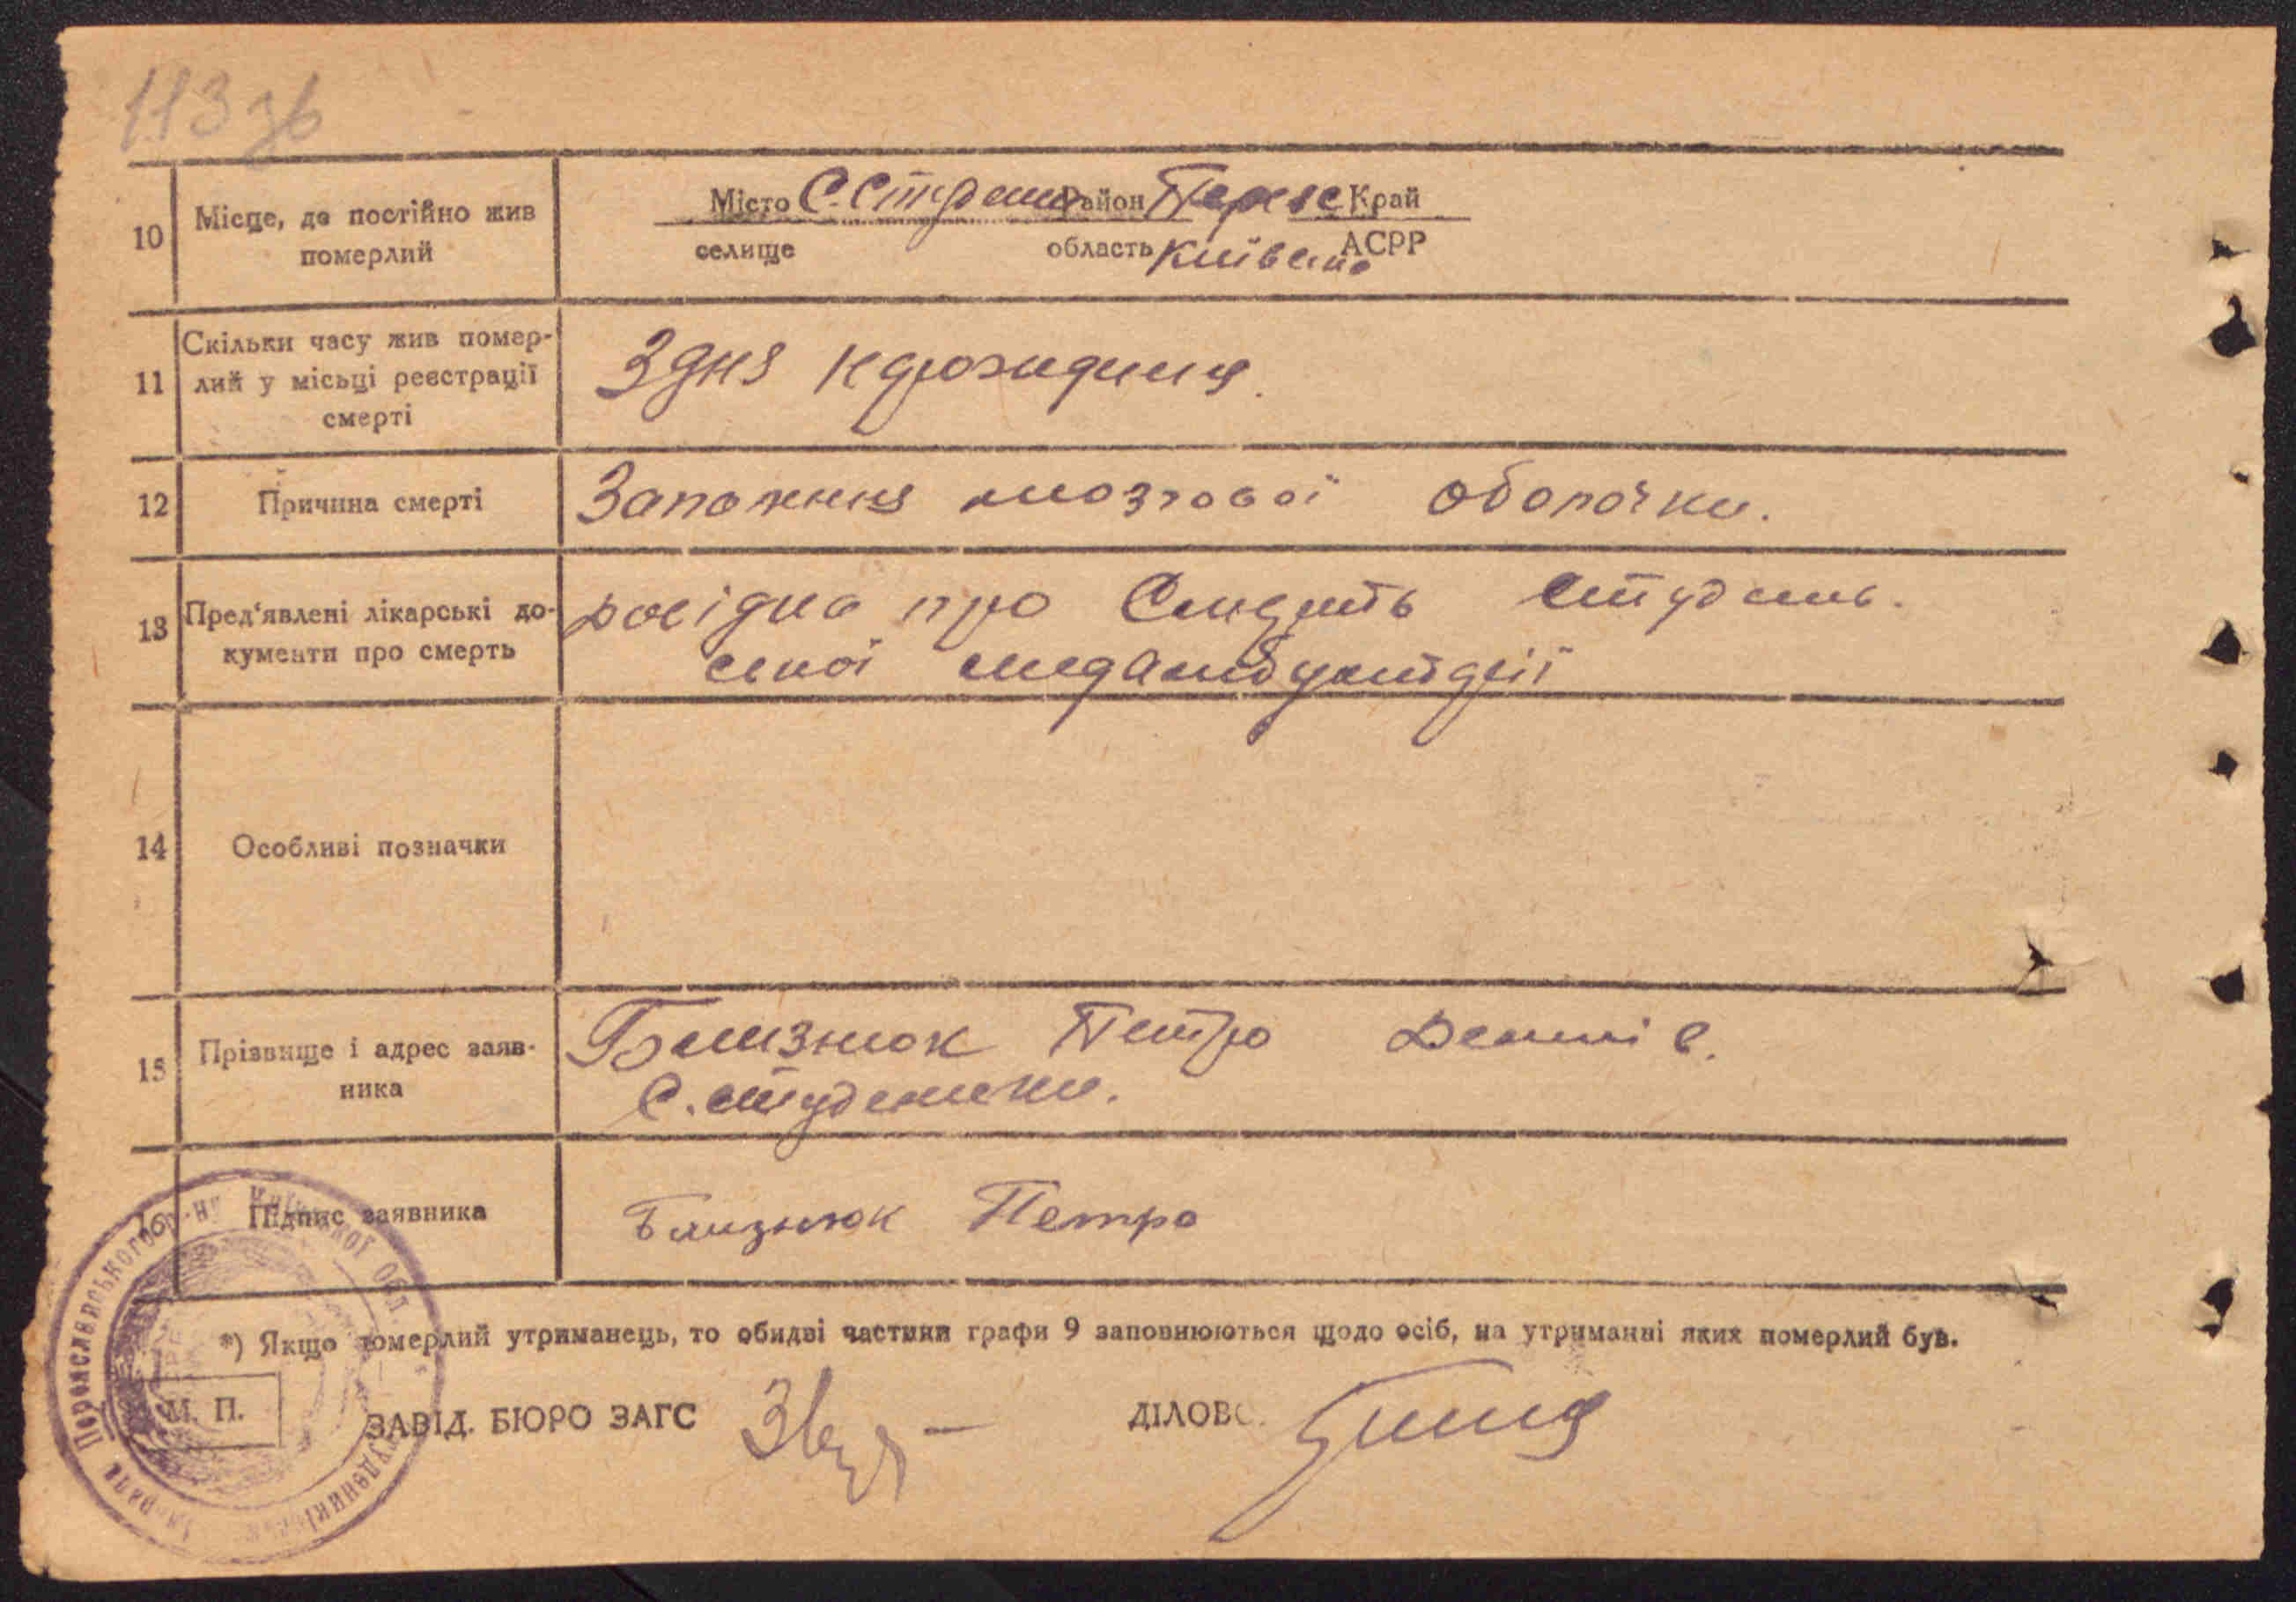 113 зв
10 Місце, де постійно жив померлий
Місто С. Студени Район Переяс Край
селище область Київська АСРР
11 Скільки часу жив помер-
лий у місьці реєстрації
смерті
З дня нарождиння.
12 Причина смерті
Запалення мозгової оболочки.
13 Пред'явлені лікарські до-
кументи про смерть
про Смерть Студень-
ської медамбулаторії
14 Особливі позначки
15 Прізвище і адрес заяв-
ника
Близнюк Петро
С. Студеники.
16 Підпис заявника
Близнюк Петро
*) Якщо померлий утриманець, то обидві частини графи 9 заповнюються щодо осіб, на утриманні яких померлий був.
М. П.
ЗАВІД. БЮРО ЗАГС
ДІЛОВ
Переяславського р-ну Київської Обл.